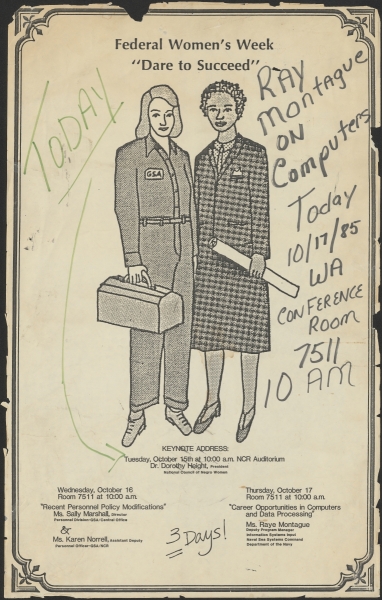 Federal Women's Week
"Dare to Succeed"
TODAY
RAY
Montague
ON
Computers
Today
10/17/85
WA
CONFERENCE
ROOM
7511
10 AM
GSA
KEYNOTE ADDRESS:
Tuesday, October 15th at 10:00 a.m. NCR Auditorium
Dr. Dorothy Height, President
National Council of Negro Women
Wednesday, October 16
Room 7511 at 10:00 a.m.
"Recent Personnel Policy Modifications"
Ms. Sally Marshall, Director
Personnel Division-GSA/Central Office
&
Ms. Karen Norrell, Assistant Deputy
Personnel Officer-GSA/NCR
3 Days!
Thursday, October 17
Room 7511 at 10:00 a.m.
"Career Opportunities in Computers
and Data Processing"
Ms. Raye Montague
Deputy Program Manager
Information Systems Input
Naval Sea Systems Command
Department of the Navy